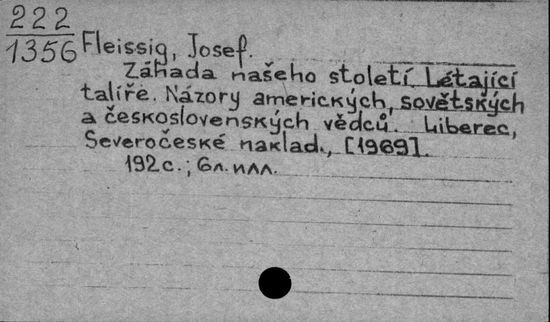 222
1356
Fleissig, Josef.
Záhada našeho století. Létající
talíře. Názory amerických, sovětských
a československých vědců. Liberec,
Severočeské naklad., [1969].
192 с.; 6 л. илл.